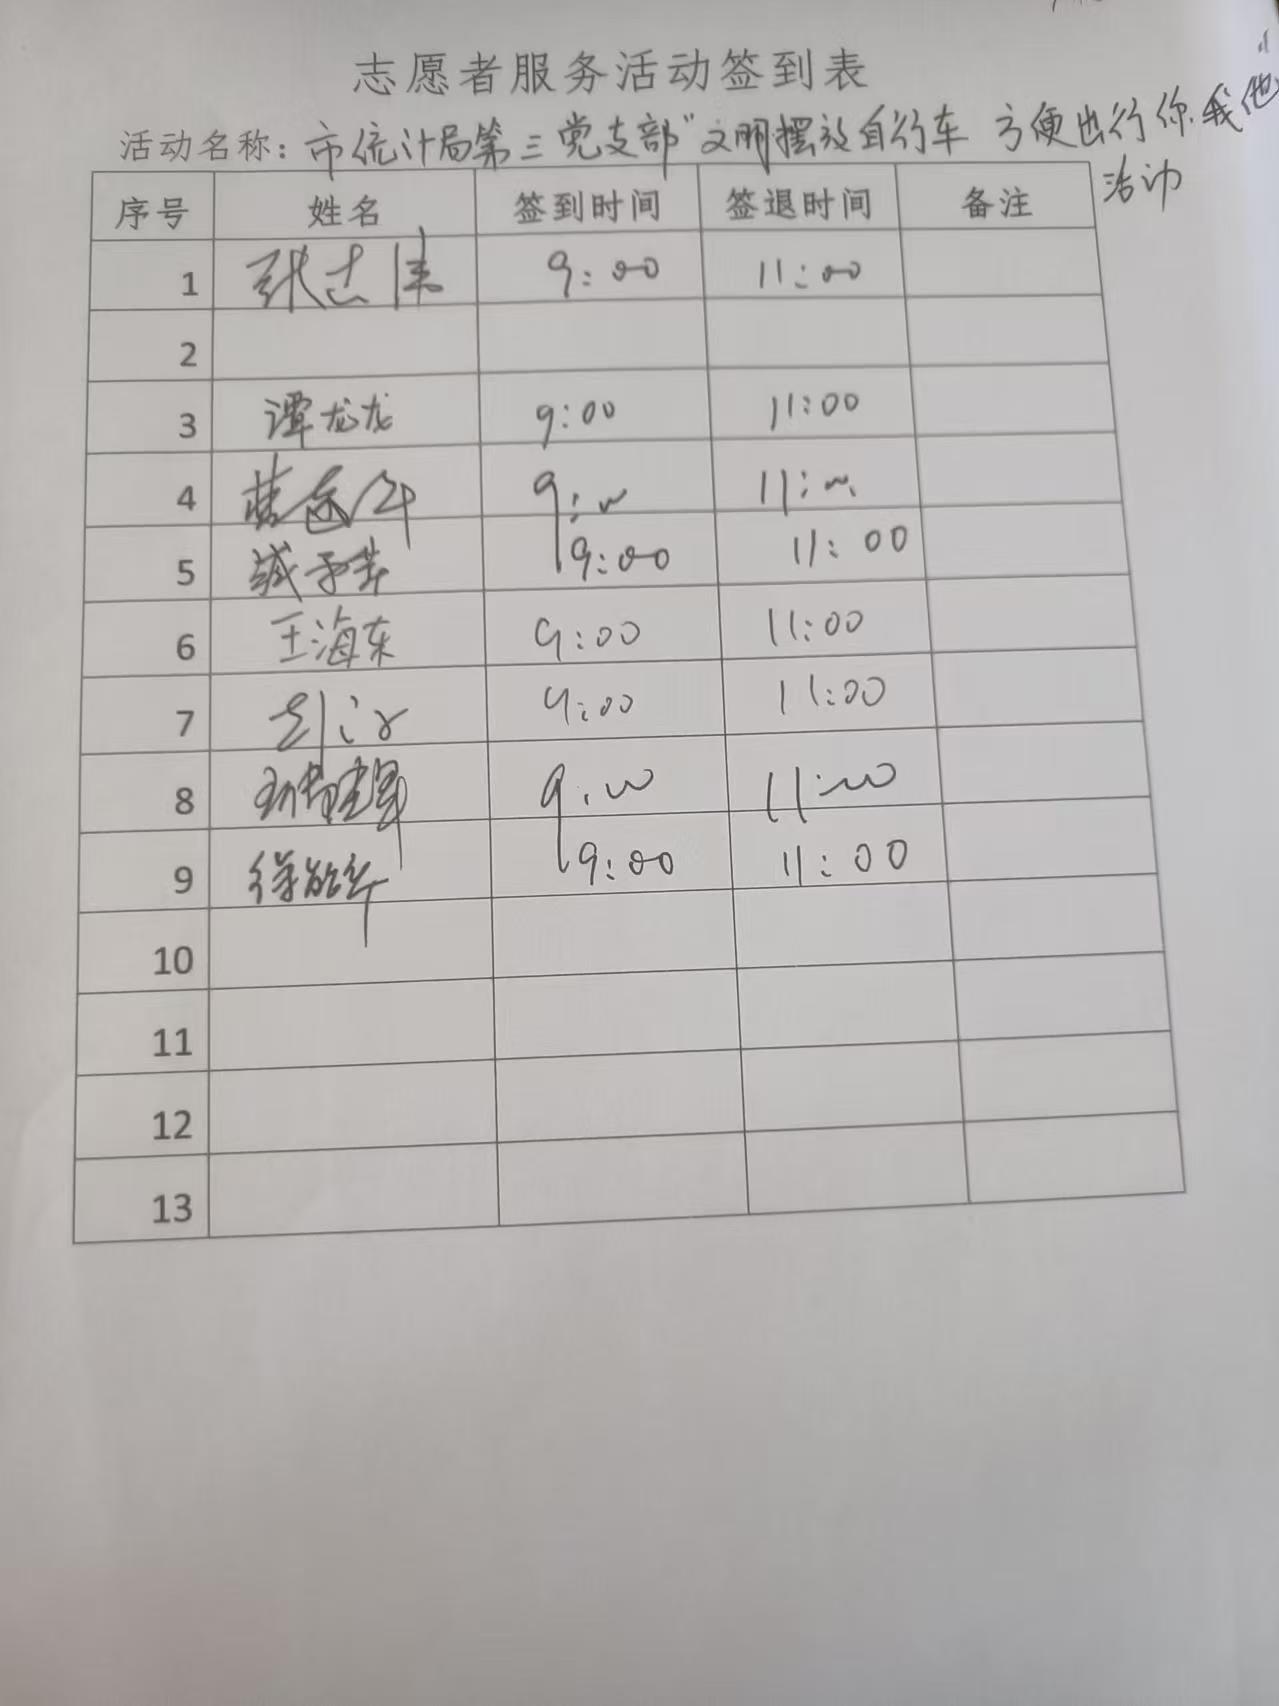 志愿者服务活动签到表
活动名称：市统计局第三党支部"文明摆放自行车 方便出行你我他"
活动
序号 姓名 签到时间 签退时间 备注
1 张志伟 9:00 11:00
2
3 谭龙龙 9:00 11:00
4 9:00 11:00
5 9:00 11:00
6 王海东 9:00 11:00
7 9:00 11:00
8 9:00 11:00
9 9:00 11:00
10
11
12
13